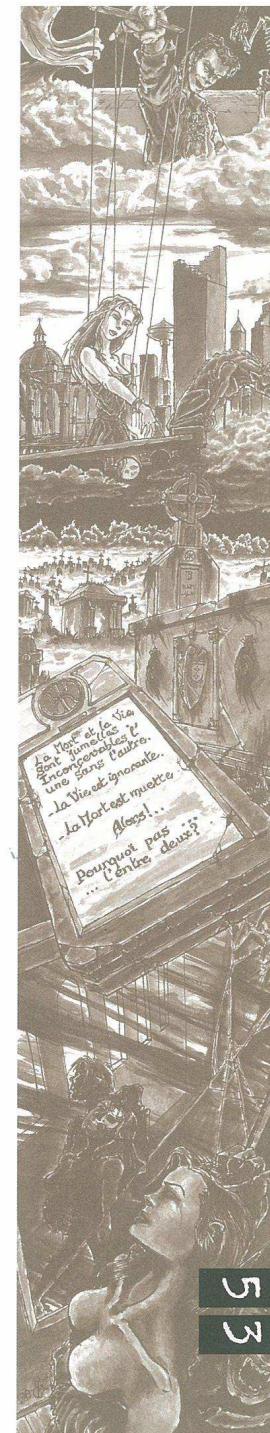 La Mort et la Vie
sont jumelles
Inconcevables l'
une sans l'autre.
-La Vie est ignorante.
-La Mort est muette.
Alors!...
Pourquoi pas
... l'entre deux?
53